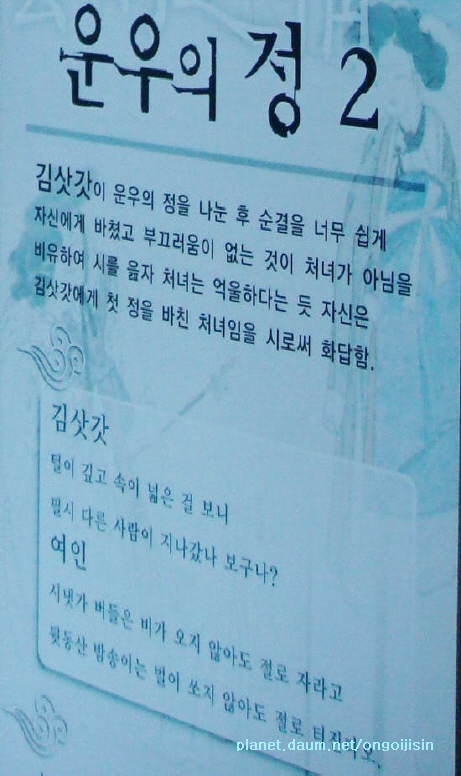 운우의 정 2
김삿갓이 운우의 정을 나눈 후 순결을 너무 쉽게
자신에게 바쳤고 부끄러움이 없는 것이 처녀가 아님을
비유하여 시를 읊자 처녀는 억울하다는 듯 자신은
김삿갓에게 첫 정을 바친 처녀임을 시로써 화답함.
김삿갓
털이 깊고 속이 넓은 걸 보니
필시 다른 사람이 지나갔나 보구나?
여인
시냇가 버들은 비가 오지 않아도 절로 자라고
뒷동산 밤송이는 벌이 쏘지 않아도 절로 터진다오.
planet.daum.net/ongoijisin